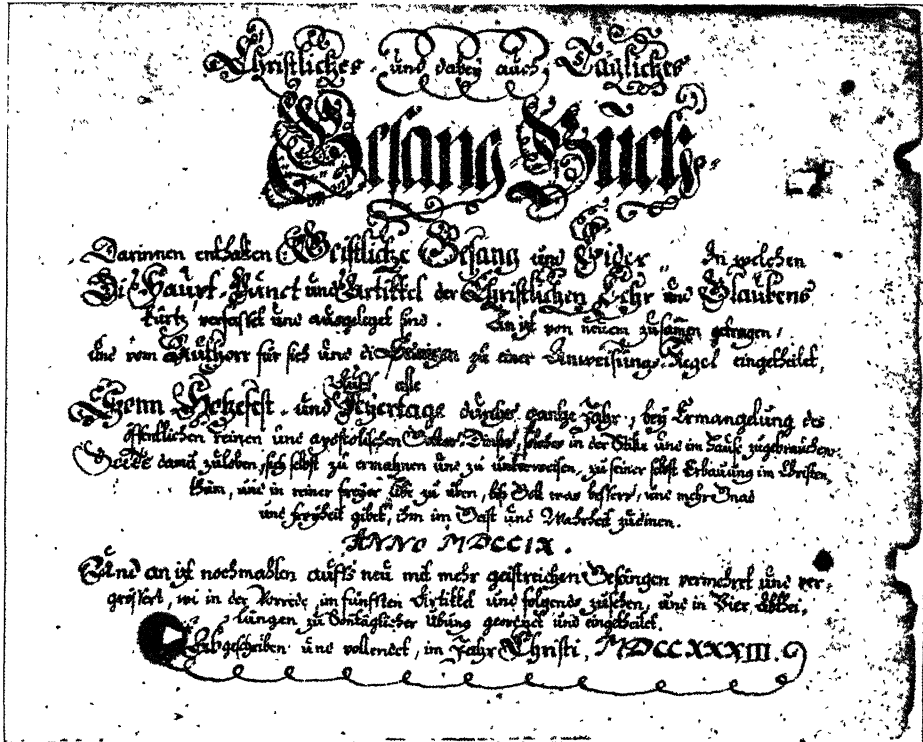 Christliches und dabey auch, Tägliches
Gesang Buch
Darinnen enthalten Geistliche Gesang und Lider In welchen
Die Haupt-Punct und Artikkel der Christlichen Lehr und Glaubens
kürtz verfasset und ausgeleget sind. An itzt von neuem zusamen getragen,
und vom Authorr für sich und die Seinigen zu einer Anweisungs-Regel eingetheilet,
Auff alle
Sonn Feyertage durchs gantze Jahr, bey Ermangelung des
öffentlichen reinen und apostolischen Gottes-Dinstes, in der Stille und im Hause zugebrauchen.
damit zuloben, sich selbst zu ermahnen und zu unterweisen, zu seiner selbst Erbauung im Christen,
thum, und in reiner freyer Libe zu üben, bis Gott was bessers, und mehr Gnad
und freyheit gibet, ihm im Geist und Wahrheit zudinen.
ANNO MDCCIX.
Und an itzt nochmahlen auffs neu mit mehr geistreichen Gesängen vermehret und ver-
grössert, wi in der Vorrede, im fünfften Artikkel und folgends zusehen, und in Vier Abthei,
lungen zu Sontäglicher übung geordnet und eingetheilet.
Abgeschriben und vollendet, im Jahr Christi, MDCCXXXIII.